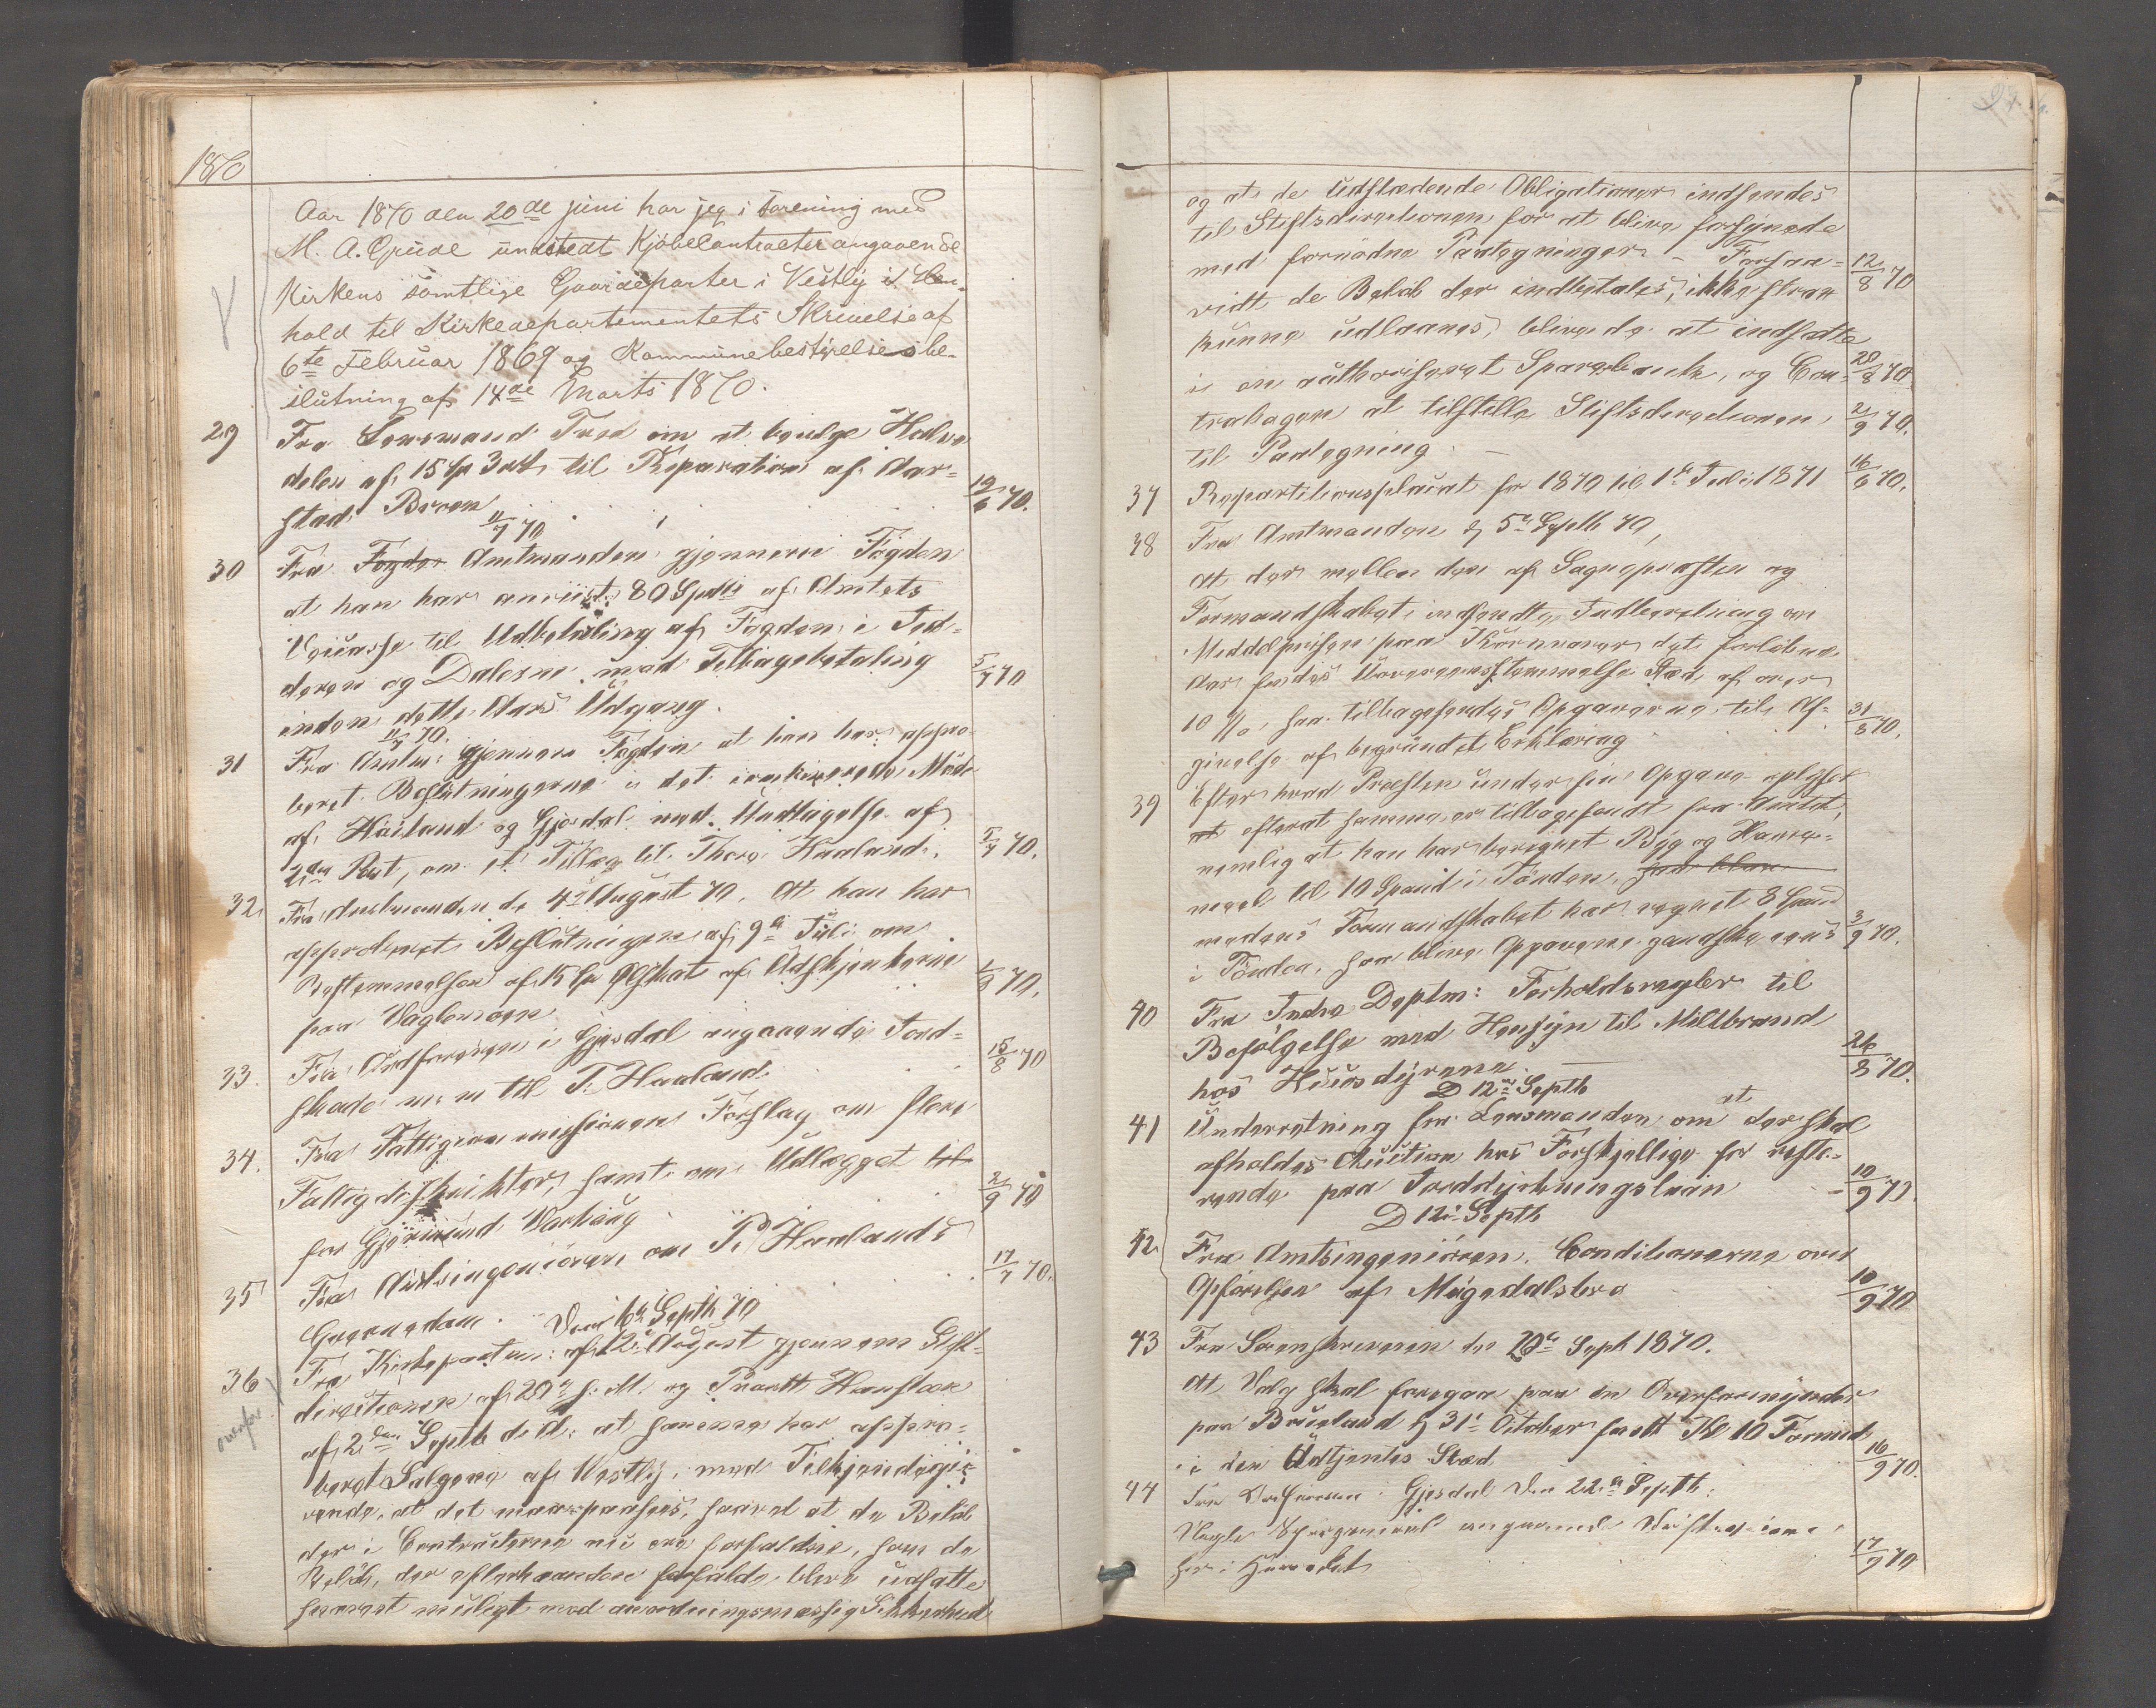 1870
Aar 1870 den 20de juni har jeg i forening med
M. A. Grude undstedt Kjöbekontrakter angaaende
Kirkens samtlige Gaardeparter i Vestly i Hen-
hold til Kirkedepartementets Skrivelse af
6te Februar 1869 og Kommunebestyrelsesbe-
slutning af 14de Marts 1870.
29 Fra Lensmand Tred om at bevilge Halve
delen af 15 Sp 3 ort til Reparation af Aar-
stad Broen 19/6 70.
11/7 70
30 Fra Fogden Amtmanden gjennem Fogden
at han har anviist 80 Spdlr af Amtets
til Udbetaling af Fogden i Jed-
deren og Dalerne mod Tilbagebetaling 5/7 70
inden dette Aars Udgang.
11/7 70.
31 Fra Amtm: gjennem Fogden at han har appro-
beret Beslutningerne i det Möde
af Höiland og Gjesdal med Undtagelse af
2den Post, om et Tillæg til Thore Haaland. 5/7 70.
32 Fra Amtmanden de 4de August 70. At han har
approberet Beslutningen af 9de Juli om
Bestemmelsen af 15 Sp Afskat af Udskjænkerne
paa Vaglemoen 70.
33. Fra Ordføreren i Gjesdal angaaende Jord-
skade m: m til T. Haaland. 15/8 70
34. Fra Fattigcommissionen Forslag om flere
Fattigdistrikter, samt om Udlægget til
for Gjörmund Varhaug 2/9 70
35 Fra Amtsingeniören om T. Haalands
Grærnedam. 17/7 70.
Den 16de Septb 70
36 Fra Kirkepartem: af 12te August gjennem Stift-
directionen af 29de f. M. og Provst
af 2den Septb d. A: at samme har appro-
beret Salgene af Vestly, med Tilkjendegi-
vende, at det maa paasees, saavel at de Belöb
der i Contracterne nu ere forfaldne, som de
Belöb, der efterhaanden forfalde blive udsatte
snarest muligt mod anordningsmæssig Sikkerhed
overfor
og at de udstædende Obligationer indsendes
til Stiftsdirectionen for at blive forsynede
med fornödne Paategninger – Forsaa- 12/8 70
vidt de Belöb der indbetales, ikke strax
kunne udlaanes, blive de at indsætte
i en authoriseret Sparebank, og Con- 20/8 70.
trabogen at tilstille Stiftsdirectionen 2/9 70.
til Paategning –
37 Repartitionsplacat for 1870 til 1te Juli 1871 16/6 70.
38 Fra Amtmanden d 5te Septb 70,
At der mellem den af Sognepræsten og
Formandskabet indsendte Indberetning om
Middelprisen paa Kornvarer det forløbne
Aar findes Uoverensstemmelse Sted af over
10 %, saa tilbagesendes Opgaverne til Af- 31/8 70.
givelse af begrundet Erklæring
39 Efter hvad Præsten under sin Opgave oplyser
at efterat samme er tilbagesendt fra Amtet,
nemlig at han har beregnet Byg og Havre-
meel til 10 Spand i Tönden,
medens Formandskabet har regnet 8 Spand
i Tönden, saa blive Opgaverne gandske eens 3/9 70.
40 Fra Indre Deptm: Forholdsregler til
Befölgelse med Hensyn til Miltbrand
hos Huusdyrene. 26/8 70.
D 12te Septb
41 Underretning fra Lensmanden om at der skal
afholdes Auction hos Forskjellige for reste-
rende paa Jorddyrkningslaan – 10/9 70
D 12te Septb
42 Fra Amtsingeniören. Conditionerne over
Opførelsen af Mugedalsbro 10/9 70
43 Fra Sorenskriveren den 20de Sept 1870.
At Valg skal foregaa paa en Overformynder
paa Brueland d 31te October førstk Kl 10 Formid
i den Udtjentes Sted 16/9 70.
44 Fra Ordføreren i Gjesdal den 22de Septb:
angaaende
her i Herredet 17/9 70